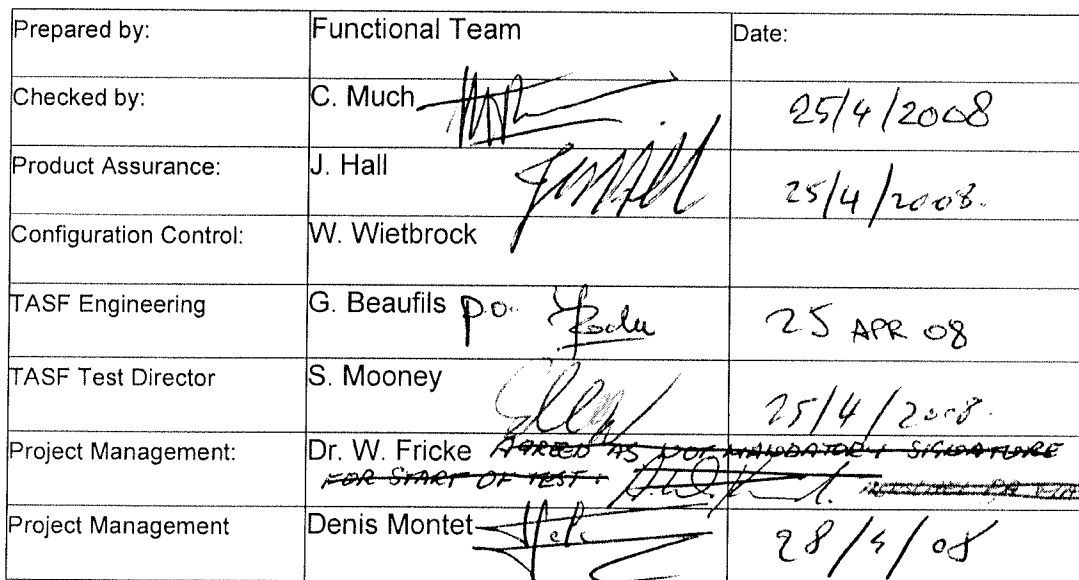 Prepared by: Functional Team Date:
Checked by: C. Much 25/4/2008
Product Assurance: J. Hall 25/4/2008.
Configuration Control: W. Wietbrock
TASF Engineering G. Beaufils p.o. 25 APR 08
TASF Test Director S. Mooney 25/4/2008.
Project Management: Dr. W. Fricke AGREED AS NOT MANDATORY SIGNATURE
FOR START OF TEST
Project Management Denis Montet 28/4/08